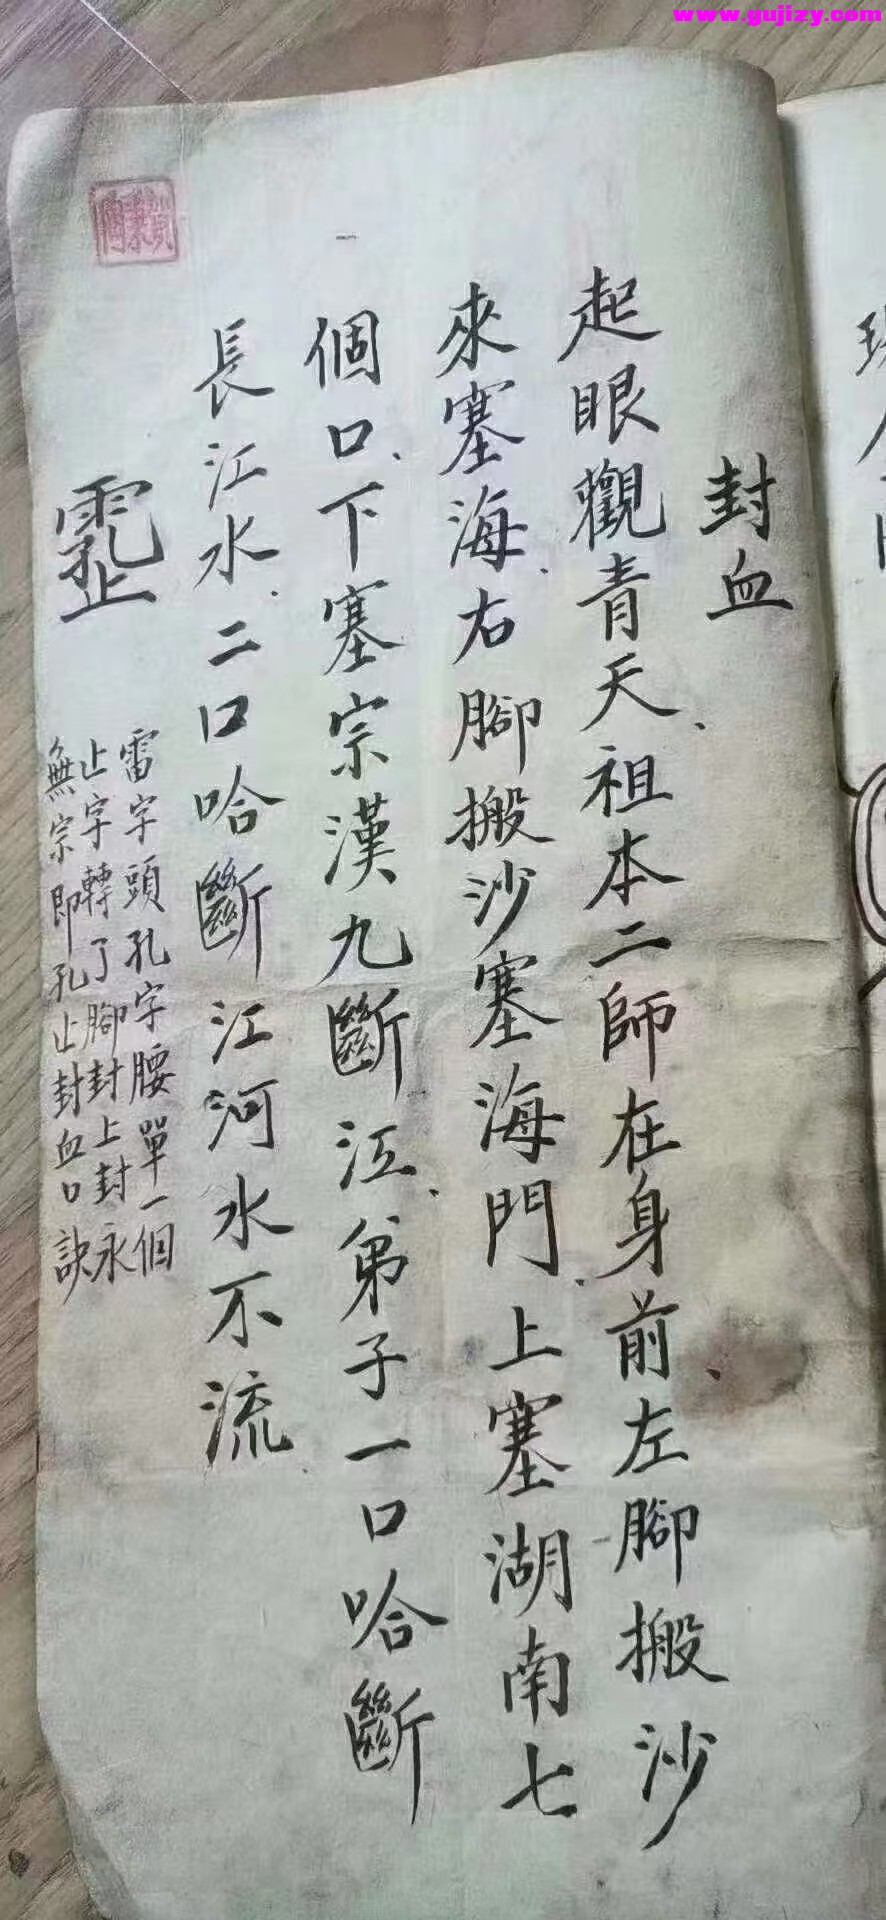 www.gujizy.com
封血
起眼觀青天、祖本二師在身前、左腳搬沙
來塞海、右腳搬沙塞海門、上塞湖南七
個口、下塞宗漢九斷江、弟子一口哈斷
長江水、二口哈斷江河水不流
雷字頭孔字腰單一個
止字轉了腳封上封永
無宗即孔止封血口訣